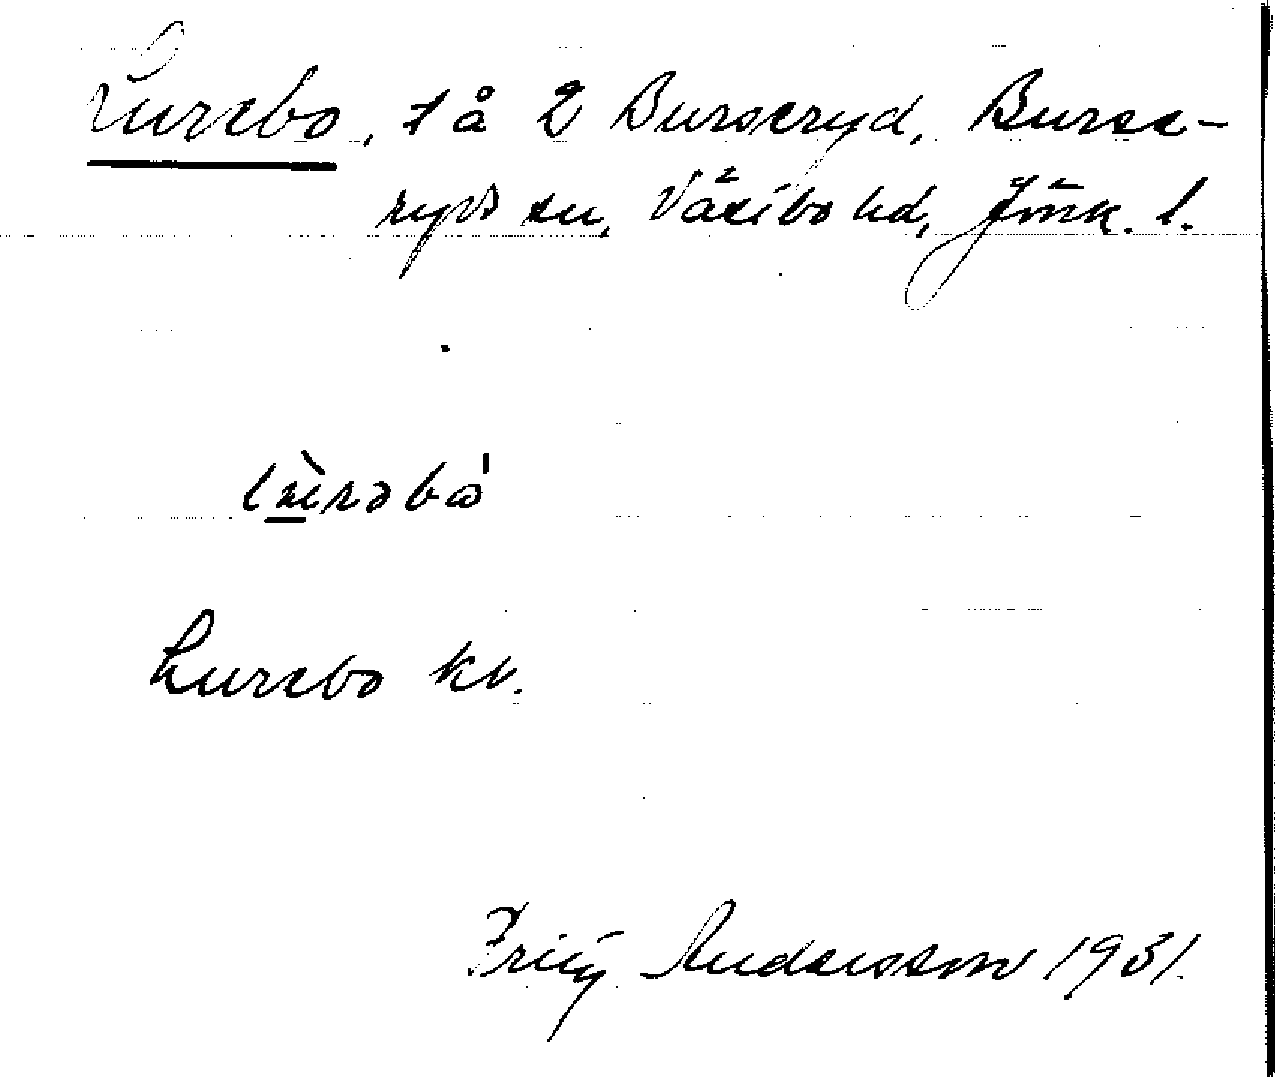 Lurebo, t å 2 Burseryd, Burse-
ryds sn, Västbo hd, Jönk. l.
Lurebo kb.
Andersson 1931.